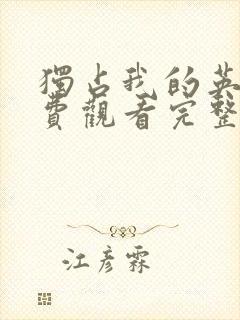 獨占我的英
費觀看完整
江彥霖